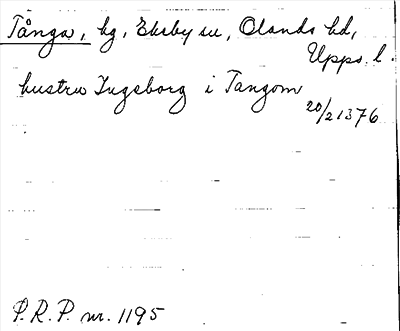 Tånga, hg, Ekeby sn, Olands hd,
Upps. l.
hustru Ingeborg i Tangom
20/2 1376
P.R.P. nr. 1195